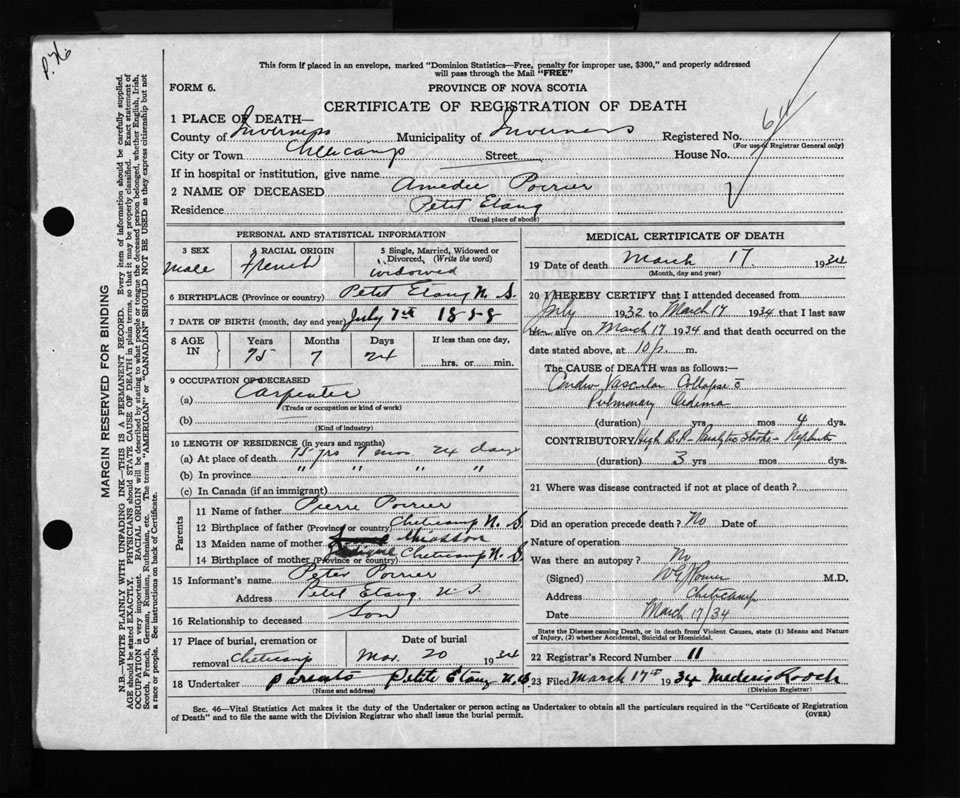 P. 76
This form if placed in an envelope, marked "Dominion Statistics—Free, penalty for improper use, $300," and properly addressed
will pass through the Mail "FREE"
FORM 6.
PROVINCE OF NOVA SCOTIA
CERTIFICATE OF REGISTRATION OF DEATH
1 PLACE OF DEATH—
County of Inverness Municipality of Inverness Registered No.
(For use of Registrar General only)
City or Town Cheticamp Street House No.
If in hospital or institution, give name
2 NAME OF DECEASED Amedee Poirier
Residence Petit Etang
(Usual place of abode)
PERSONAL AND STATISTICAL INFORMATION
3 SEX
male
4 RACIAL ORIGIN
French
5 Single, Married, Widowed or
Divorced, (Write the word)
widowed
6 BIRTHPLACE (Province or country) Petit Etang N. S.
7 DATE OF BIRTH (month, day and year) July 7th 1858
8 AGE IN
Years Months Days If less than one day,
75 7 24 hrs. or min.
9 OCCUPATION OF DECEASED
(a) Carpenter
(Trade or occupation or kind of work)
(b)
(Kind of industry)
10 LENGTH OF RESIDENCE (in years and months)
(a) At place of death 75 yrs 7 mos 24 days
(b) In province " " " "
(c) In Canada (if an immigrant)
Parents
11 Name of father Pierre Poirier
12 Birthplace of father (Province or country) Cheticamp N. S.
13 Maiden name of mother Chiasson
14 Birthplace of mother (Province or country) Cheticamp N. S.
15 Informant's name Peter Poirier
Address Petit Etang N. S.
16 Relationship to deceased Son
17 Place of burial, cremation or
removal Cheticamp
Date of burial
Mar. 20 1934
18 Undertaker Parents Petite Etang N.S.
(Name and address)
MEDICAL CERTIFICATE OF DEATH
19 Date of death March 17 1934
(Month, day and year)
20 I HEREBY CERTIFY that I attended deceased from
July 1932 to March 17 1934 that I last saw
him alive on March 17 1934 and that death occurred on
date stated above, at 10 p. m.
The CAUSE of DEATH was as follows:—
Vascular Collapse c̄
Pulmonary Oedema
(duration) yrs mos 4 dys.
CONTRIBUTORY High B.P. - Paralytic Stroke - Nephritis
(duration) 3 yrs mos dys.
21 Where was disease contracted if not at place of death?
Did an operation precede death? No Date of
Nature of operation
Was there an autopsy? No
(Signed) M.D.
Address Cheticamp
Date March 17/34
State the Disease causing Death, or in death from Violent Causes, state (1) Means and Nature
of Injury, (2) whether Accidental, Suicidal or Homicidal.
22 Registrar's Record Number 11
23 Filed March 17th 1934 Mederis Roach
(Division Registrar)
Sec. 46—Vital Statistics Act makes it the duty of the Undertaker or person acting as Undertaker to obtain all the particulars required in the "Certificate of Registration
of Death" and to file the same with the Division Registrar who shall issue the burial permit.
(OVER)
MARGIN RESERVED FOR BINDING
N.B.—WRITE PLAINLY WITH UNFADING INK—THIS IS A PERMANENT RECORD. Every item of information should be carefully supplied.
AGE should be stated EXACTLY. PHYSICIANS should STATE CAUSE OF DEATH in plain terms, so that it may be properly classified. Exact statement of
OCCUPATION is very important. RACIAL ORIGIN will be described by stating to what people or tongue the deceased person belonged, whether English, Irish,
Scotch, French, German, Russian, Ruthenian, etc. The terms "AMERICAN" or "CANADIAN" SHOULD NOT BE USED as they express citizenship but not
a race or people. See instructions on back of Certificate.